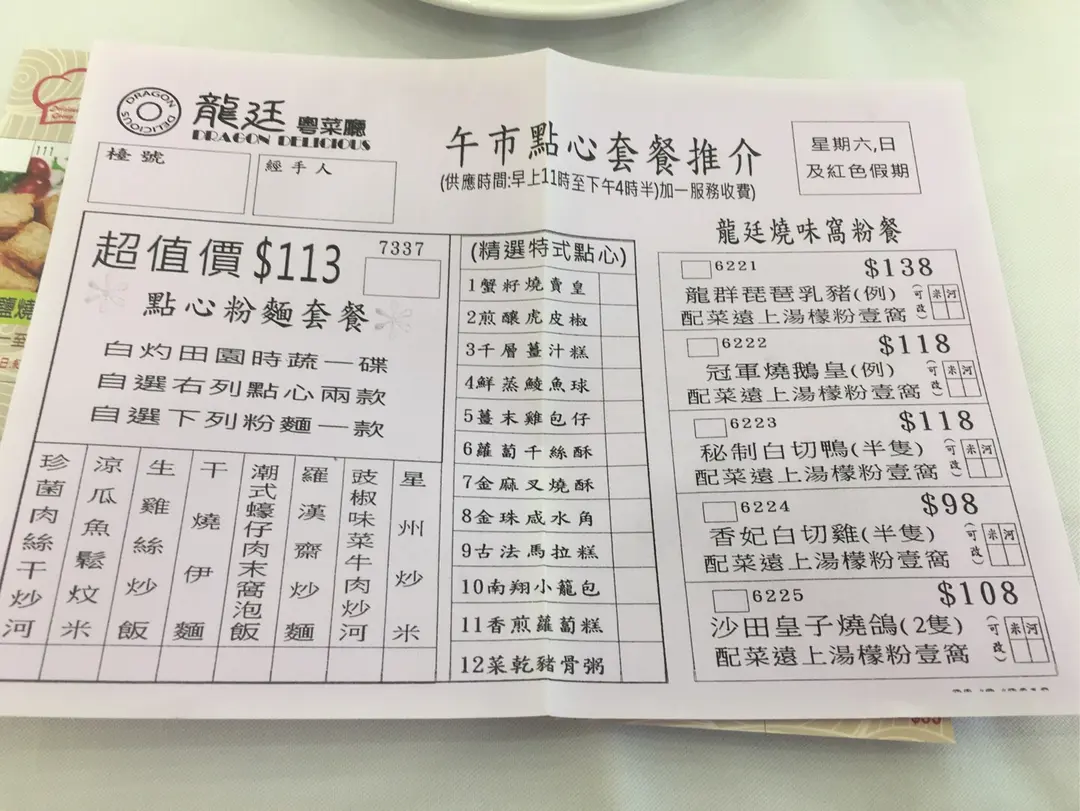 DRAGON DELICIOUS
龍廷 粵菜廳
DRAGON DELICIOUS
檯號
經手人
午市點心套餐推介
(供應時間:早上11時至下午4時半)加一服務收費)
星期六,日
及紅色假期
超值價$113
7337
點心粉麵套餐
白灼田園時蔬一碟
自選右列點心兩款
自選下列粉麵一款
珍菌肉絲干炒河
涼瓜魚鬆炆米
生雞絲炒飯
干燒伊麵
潮式蠔仔肉末窩泡飯
羅漢齋炒麵
豉椒味菜牛肉炒河
星州炒米
(精選特式點心)
1蟹籽燒賣皇
2煎釀虎皮椒
3千層薑汁糕
4鮮蒸鯪魚球
5薑末雞包仔
6蘿蔔千絲酥
7金麻叉燒酥
8金珠咸水角
9古法馬拉糕
10南翔小籠包
11香煎蘿蔔糕
12菜乾豬骨粥
龍廷燒味窩粉餐
6221 $138
龍群琵琶乳豬(例) (可改) 米 河
配菜遠上湯檬粉壹窩
6222 $118
冠軍燒鵝皇(例) (可改) 米 河
配菜遠上湯檬粉壹窩
6223 $118
秘制白切鴨(半隻) (可改) 米 河
配菜遠上湯檬粉壹窩
6224 $98
香妃白切雞(半隻) (可改) 米 河
配菜遠上湯檬粉壹窩
6225 $108
沙田皇子燒鴿(2隻) (可改) 米 河
配菜遠上湯檬粉壹窩
111
鹽燒